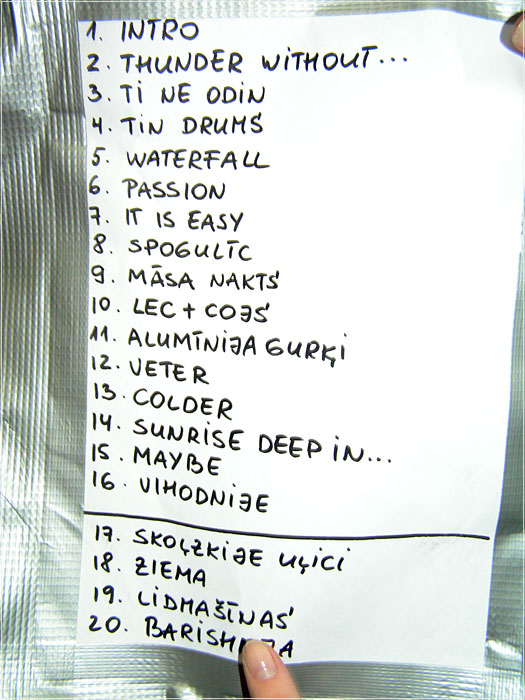 1. INTRO
2. THUNDER WITHOUT...
3. TI NE ODIN
4. TIN DRUMS
5. WATERFALL
6. PASSION
7. IT IS EASY
8. SPOGULĪC
9. MĀSA NAKTS
10. LEC + COJS
11. ALUMĪNIJA GURĶI
12. VETER
13. COLDER
14. SUNRISE DEEP IN...
15. MAYBE
16. VIHODNIJE
17. SKOĻZKIJE UĻICI
18. ZIEMA
19. LIDMAŠĪNAS
20.